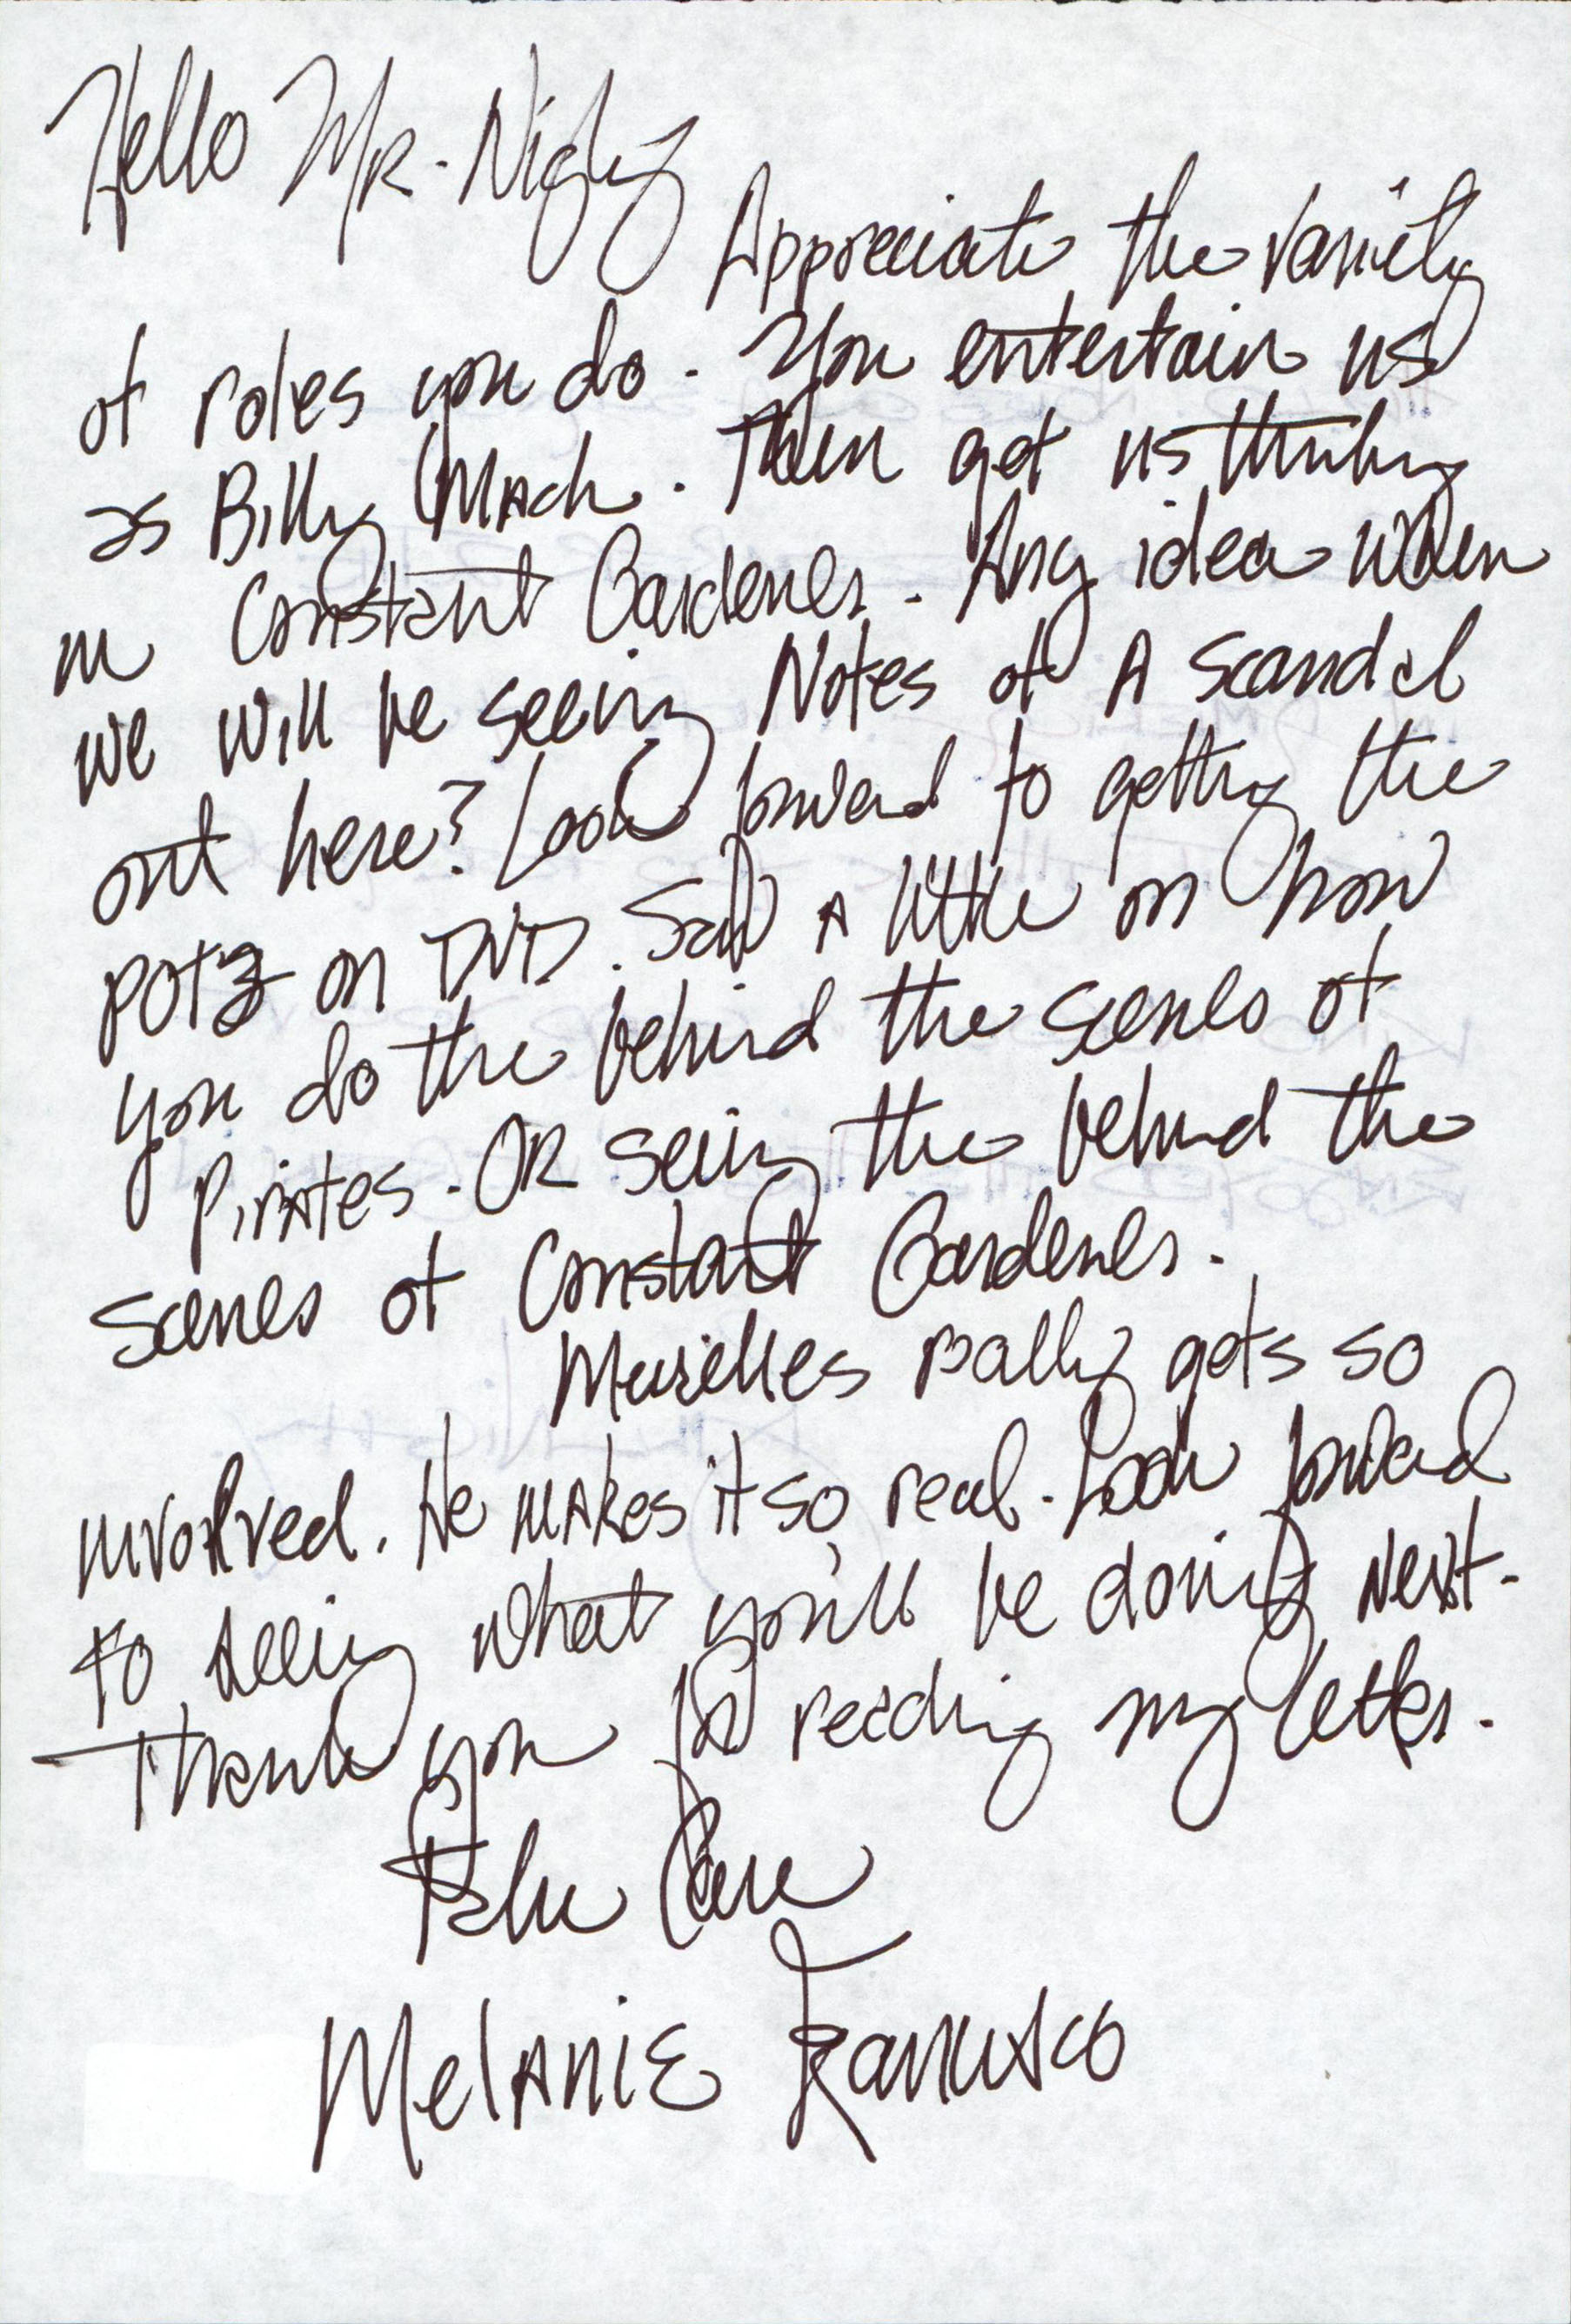 Hello Mr. Nighy
Appreciate the variety
of roles you do. You entertain us
as Billy Mack. Then get us thinking
in Constant Gardener. Any idea when
we will be seeing Notes of A Scandal
out here? Look forward to getting the
POTC on DVD. Saw A little on how
you do the behind the scenes of
Pirates. OR seeing the behind the
scenes of Constant Gardener.
really gets so
involved. He makes it so real. Look forward
to seeing what you'll be doing next.
Thank you for reading my letter.
Take Care
Melanie